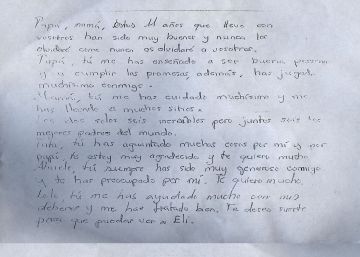 Papá, mamá, estos 11 años que llevo con
vosotros han sido muy buenos y nunca los
olvidaré como nunca os olvidaré a vosotros.
Papá, tú me has enseñado a ser buena persona
y a cumplir las promesas, además, has jugado
muchísimo conmigo.
Mamá, tú me has cuidado muchísimo y me
has llevado a muchos sitios.
Los dos solos sois increíbles pero juntos sois los
mejores padres del mundo.
tú has aguantado muchas cosas por mí y por
papá, te estoy muy agradecido y te quiero mucho.
Abuelo, tú siempre has sido muy generoso conmigo
y te has preocupado por mí. Te quiero mucho.
Lolo, tú me has ayudado mucho con mis
deberes y me has tratado bien. Te deseo suerte
para que puedas ver a Eli.